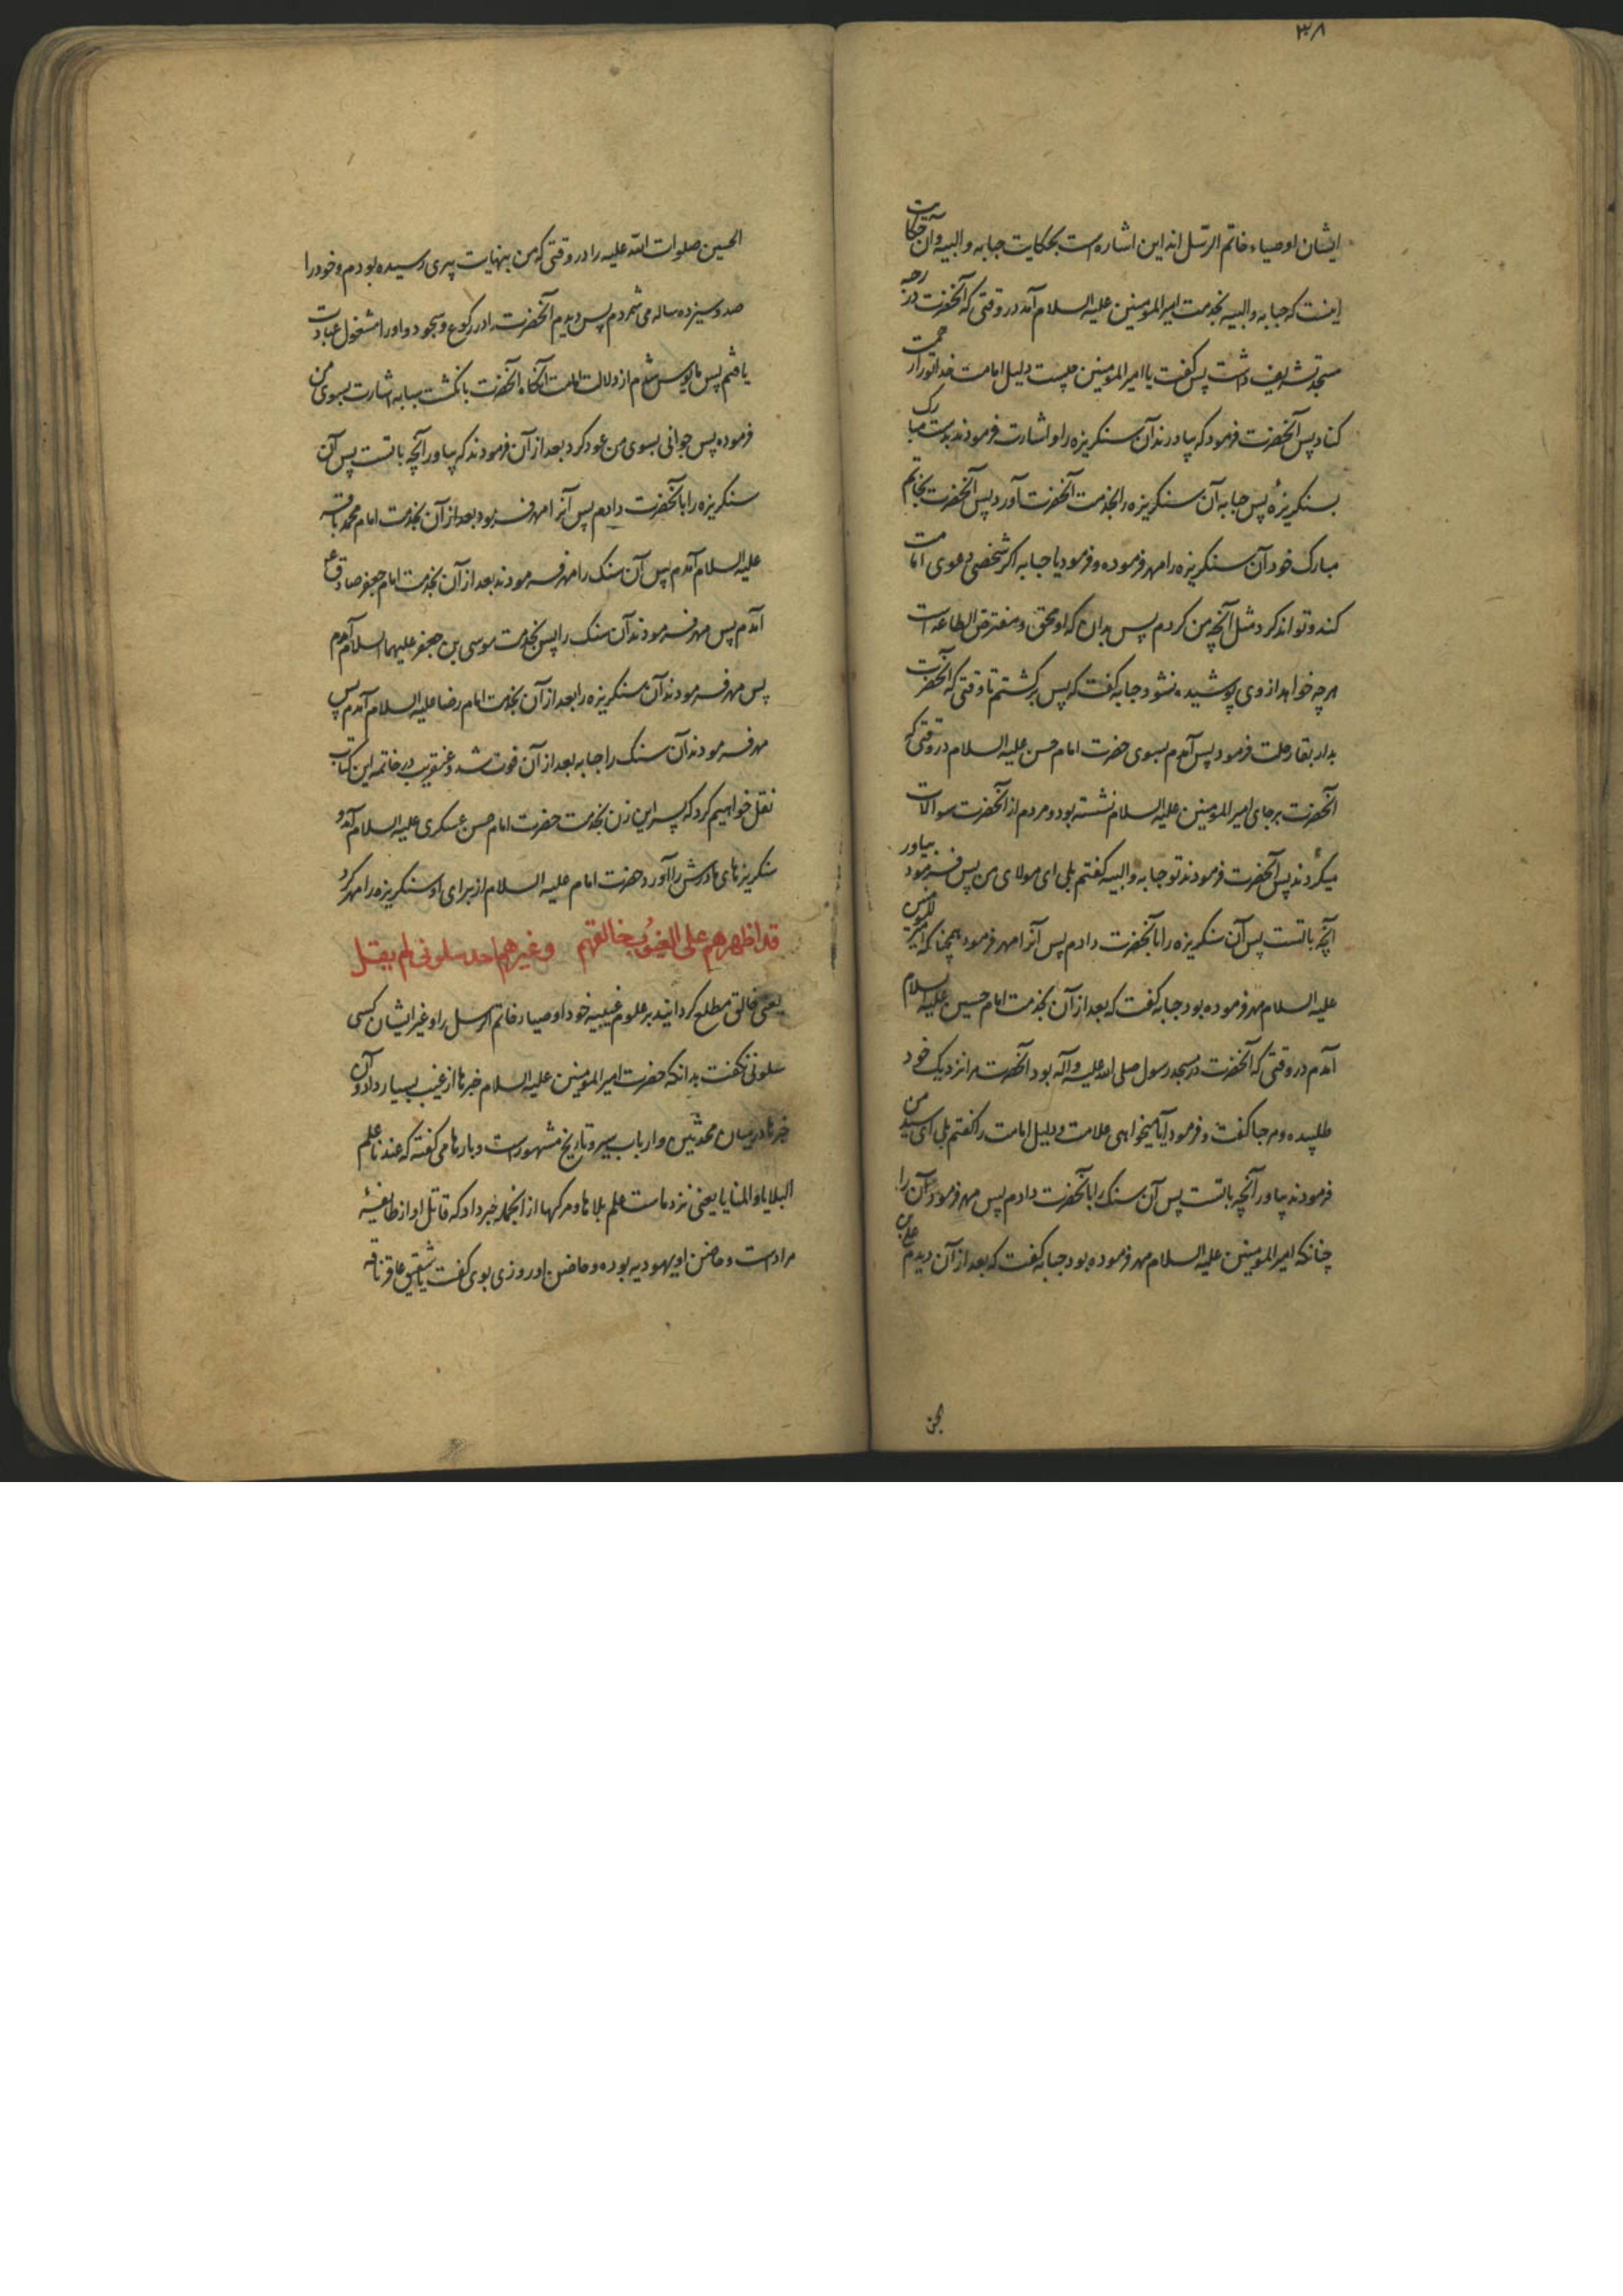 ۳۸
ایشان اوصیاء خاتم الرسل اند این اشاره است بحکایت حبابه والبیه وآن حکایت
اینست که حبابه والبیه بخدمت امیرالمومنین علیه السلام آمد در وقتی که آنحضرت در رحبه
مسجد تشریف داشت پس کفت یا امیرالمومنین چیست دلیل امامت خدا تورا رحمت
کناد پس آنحضرت فرمود که بیاورند آن سنکریزه را و اشارت فرمودند بدست مبارک
بسنکریزهٔ پس حبابه آن سنکریزه را بخدمت آنحضرت آورد پس آنحضرت بخاتم
مبارک خود آن سنکریزه را مهر فرموده و فرمود یا حبابه اکر شخصی دعوی امامت
کند و تواند کرد مثل آنچه من کردم پس بدان که او محق و مفترض الطاعه است
هرچه خواهد از وی پوشیده نشود حبابه کفت که پس برکشتم تا وقتی که آنحضرت
بدار بقا رحلت فرمود پس آمدم بسوی حضرت امام حسن علیه السلام در وقتی که
آنحضرت برجای امیرالمومنین علیه السلام نشسته بود و مردم از آنحضرت سوالات
میکردند پس آنحضرت فرمودند تو حبابه والبیه کفتم بلی ای مولای من پس فرمود بیاور
آنچه باتست پس آن سنکریزه را بآنحضرت دادم پس آنرا مهر فرمود همچنانکه امیرالمومنین
علیه السلام مهر فرموده بود حبابه کفت که بعد از آن بخدمت امام حسین علیه السلام
آمدم در وقتی که آنحضرت در مسجد رسول صلی الله علیه وآله بود آنحضرت مرا نزدیک خود
طلبیده و مرحبا کفت و فرمود آیا میخواهی علامت و دلیل امامت را کفتم بلی ای سید من
فرمودند بیاور آنچه باتست پس آن سنک را بآنحضرت دادم پس مهر فرمود آن را
چنانکه امیرالمومنین علیه السلام مهر فرموده بود حبابه کفت که بعد از آن دیدم علی بن
الحسین صلوات الله علیه را در وقتی که من بنهایت پیری رسیده بودم و خود را
صد و سیزده ساله می شمردم پس دیدم آنحضرت را در رکوع و سجود و او را مشغول عبادت
یافتم پس مایوس شدم از دلالت امامت آنکاه آنحضرت بانکشت سبابه اشارت بسوی من
فرموده پس جوانی بسوی من عود کرد بعد از آن فرمودند که بیاور آنچه باتست پس آن
سنکریزه را بآنحضرت دادم پس آنرا مهر فرمود بعد از آن بخدمت امام محمد باقر
علیه السلام آمدم پس آن سنک را مهر فرمودند بعد از آن بخدمت امام جعفر صادق ع
آمدم پس مهر فرمودند آن سنک را پس بخدمت موسی بن جعفر علیهما السلام آمدم
پس مهر فرمودند آن سنکریزه را بعد از آن بخدمت امام رضا علیه السلام آمدم پس
مهر فرمودند آن سنک را حبابه بعد از آن فوت شد و عنقریب در خاتمه این کتاب
نقل خواهیم کرد که پسر این زن بخدمت حضرت امام حسن عسکری علیه السلام آمد و
سنکریزهای مادرش را آورد حضرت امام علیه السلام از برای او سنکریزه را مهر کرد
قد اظهرهم علی الغیوب خالقهم وغیرهم احد سلونی لم یقل
یعنی خالق مطلع کردانید بر علوم غیبیه خود اوصیاء خاتم الرسل را و غیر ایشان کسی
سلونی نکفت بدانکه حضرت امیرالمومنین علیه السلام خبرها از غیب بسیار داد و آن
خبرها درمیان محدثین و ارباب سیر و تاریخ مشهور است و بارها می کفته که عندنا علم
البلایا والمنایا یعنی نزد ماست علم بلاها و مرکها از انجمله خبر داد که قاتل او از طایفهٔ
مراد است و حاضن او یهودیه بوده و حاضن او روزی بوی کفت یا شقیق عاقر ناقه
لحن